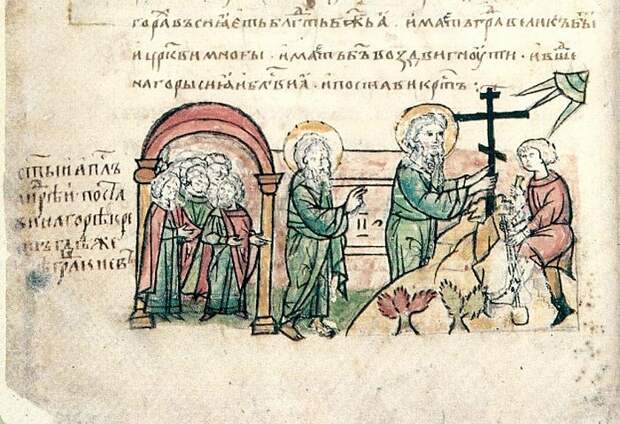 гораⷯ въсиꙗеть бл҃гть бж҃ьꙗ · имать граⷣ великъ быⷮи
и цр҃кви многы · имать бъ воздвигноути · и въшеⷣ
на горы сиꙗ и бл҃гви ꙗ · и постави крⷭтъ :
ст҃ыи апⷭлъ
андрѣи поста
ви на горѣ кре
стъ гдѣ же
граⷣ киевъ